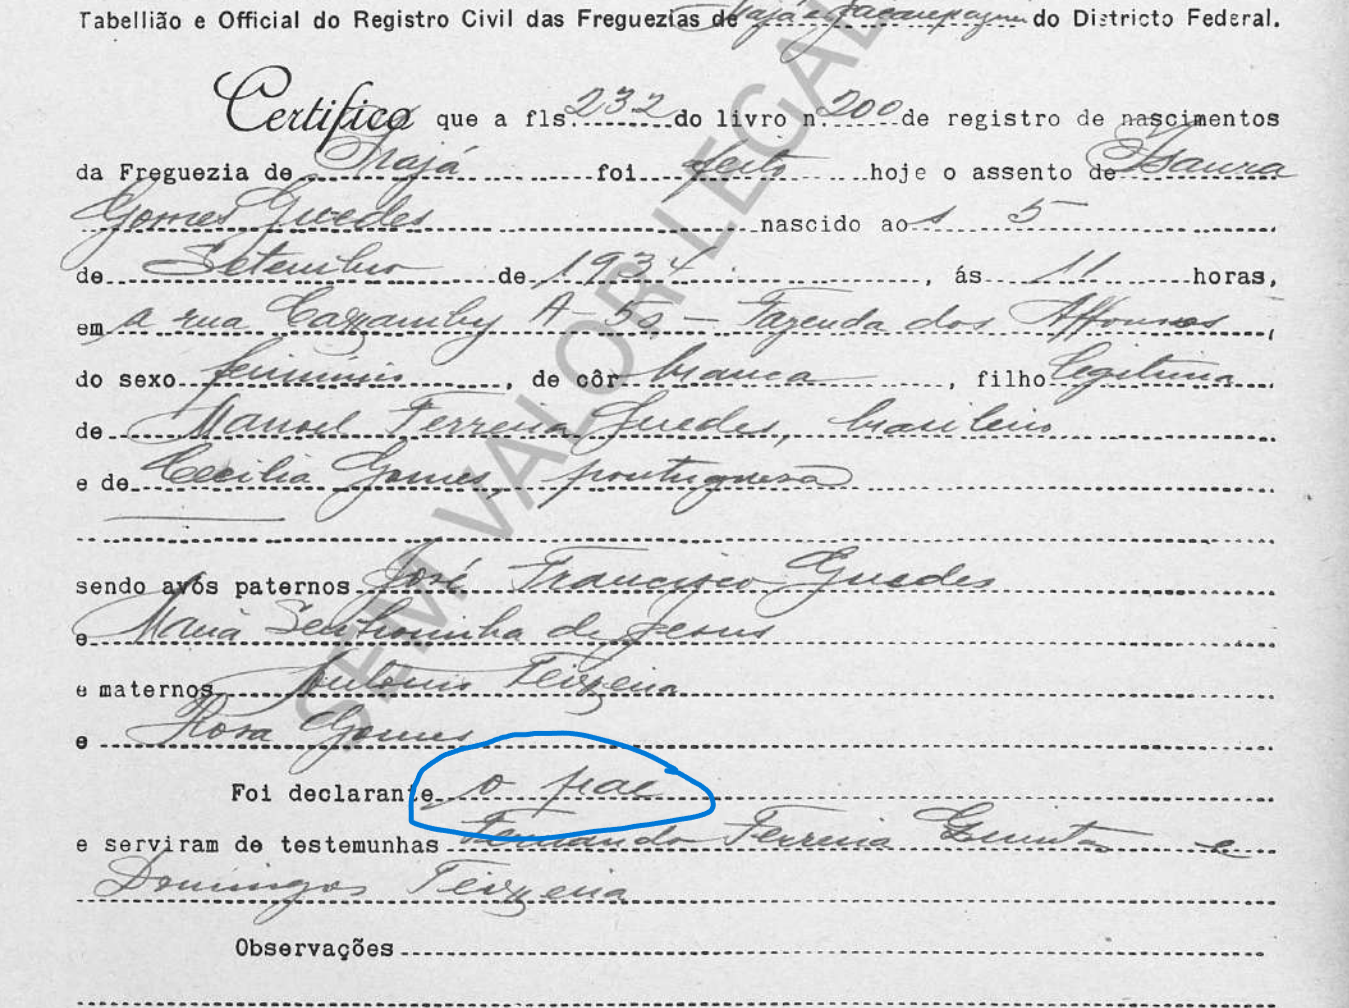 Tabellião e Official do Registro Civil das Freguezias de Irajá e Jacarepagua do Districto Federal.
Certifico que a fls. 232 do livro n. 200 de registro de nascimentos
da Freguezia de Irajá foi feito hoje o assento de Isaura
Gomes Guedes nascido aos 5
de Setembro de 1934, ás 11 horas,
em a rua A-50 - Fazenda dos Affonsos,
do sexo feminino, de côr branca, filho legitima
de Manoel Ferreira Guedes, brasileiro
e de Cecilia Gomes, portuguesa
sendo avós paternos José Francisco Guedes
e Maria Senhorinha de Jesus
e maternos Antonio Teixeira
e Rosa Gomes
Foi declarante o pae
e serviram de testemunhas Fernando Ferreira e
Domingos Teixeira
Observações
SEM VALOR LEGAL